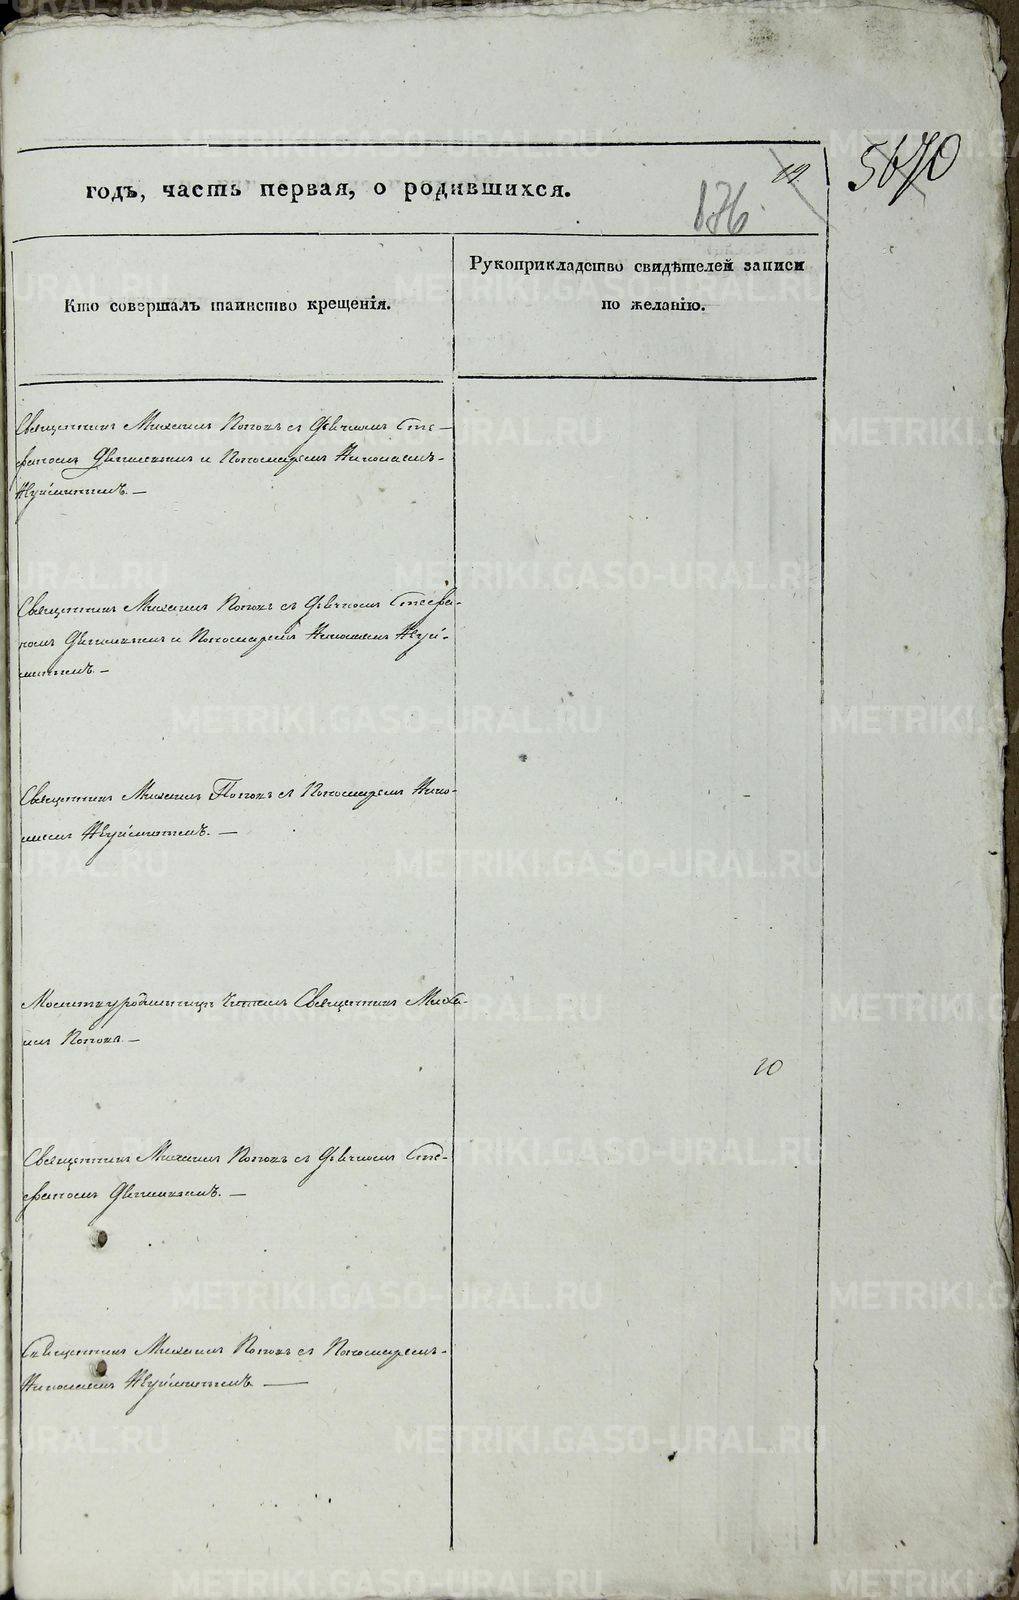 годъ, часть первая, о родившихся.
19
136
5670
Кто совершалъ таинство крещенія.
Рукоприкладство свидѣтелей записи
по желанію.
Священникъ Михаилъ Поповъ съ Дьячкомъ Сте-
фаномъ и Пономаремъ Николаемъ
Священникъ Михаилъ Поповъ съ Дьячкомъ Стефа-
номъ и Пономаремъ Николаемъ
Священникъ Михаилъ Поповъ съ Пономаремъ Нико-
лаемъ
Молитву родильницѣ читалъ Священникъ Миха-
илъ Поповъ. —
20
Священникъ Михаилъ Поповъ съ Дьячкомъ Сте-
фаномъ
Священникъ Михаилъ Поповъ съ Пономаремъ
Николаемъ
METRIKI.GASO-URAL.RU